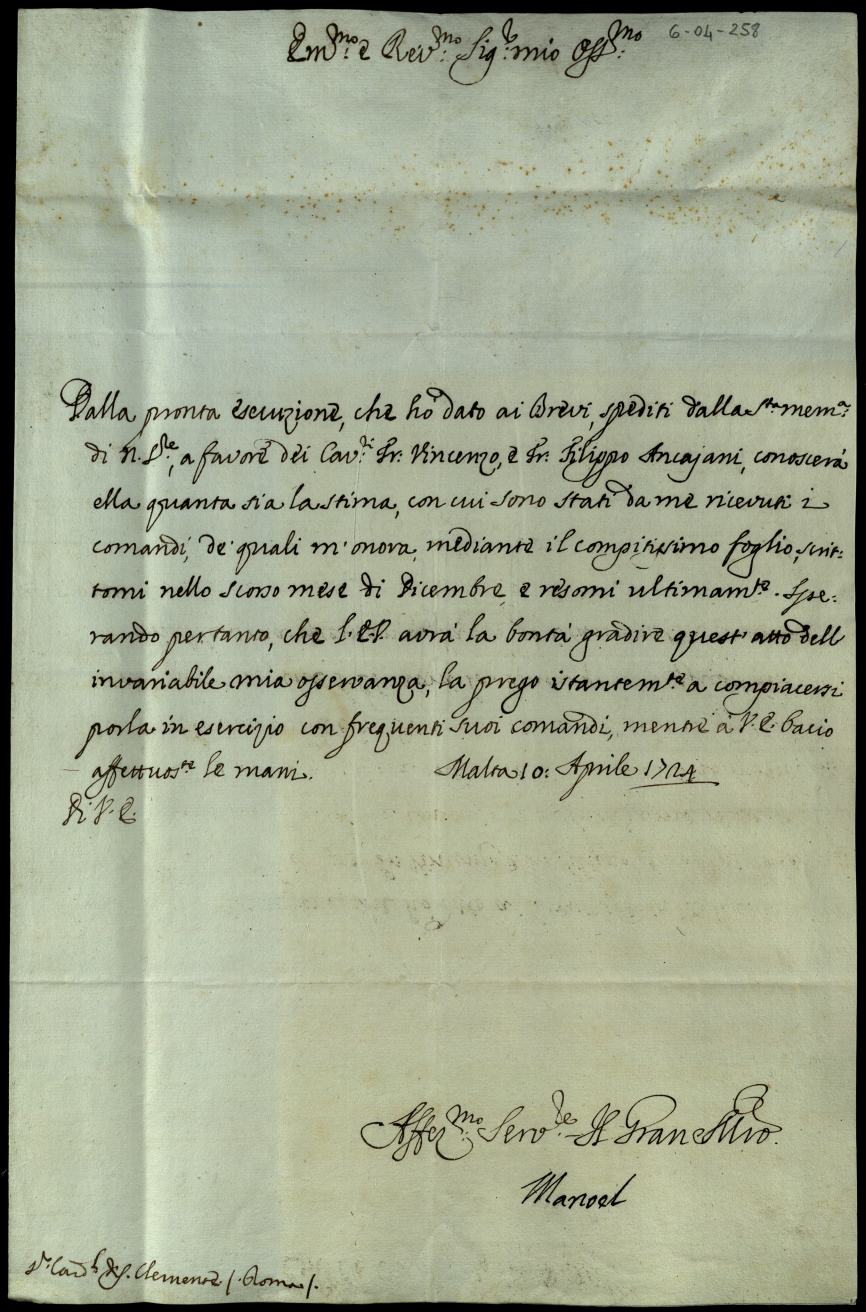 6-04-258
Em.mo e Rev.mo Sig.r mio Oss.mo
Dalla pronta esecuzione, che ho dato ai Brevi, spediti dalla S.ta mem.a
di N. S.re, a favore dei Cav.ri Fr. Vincenzo, e Fr. Filippo Ancajani, conoscerà
ella quanta sia la stima, con cui sono stati da me ricevuti i
comandi, de' quali m'onora, mediante il compitissimo foglio, scrit-
tomi nello scorso mese di Dicembre, e resomi ultimam.te. Spe-
rando pertanto, che l'E.V. avrà la bontà gradire quest'atto dell'
invariabile mia osservanza, la prego istantem.te a compiacersi
porla in esercizio con frequenti suoi comandi, mentre à V.E. bacio
affettuos.te le mani. Malta 10: Aprile 1724
Di V. E.
Affez.mo Serv.re Il Gran M.ro
Manoel
S.r Card.l di S. Clemente /. Roma /.